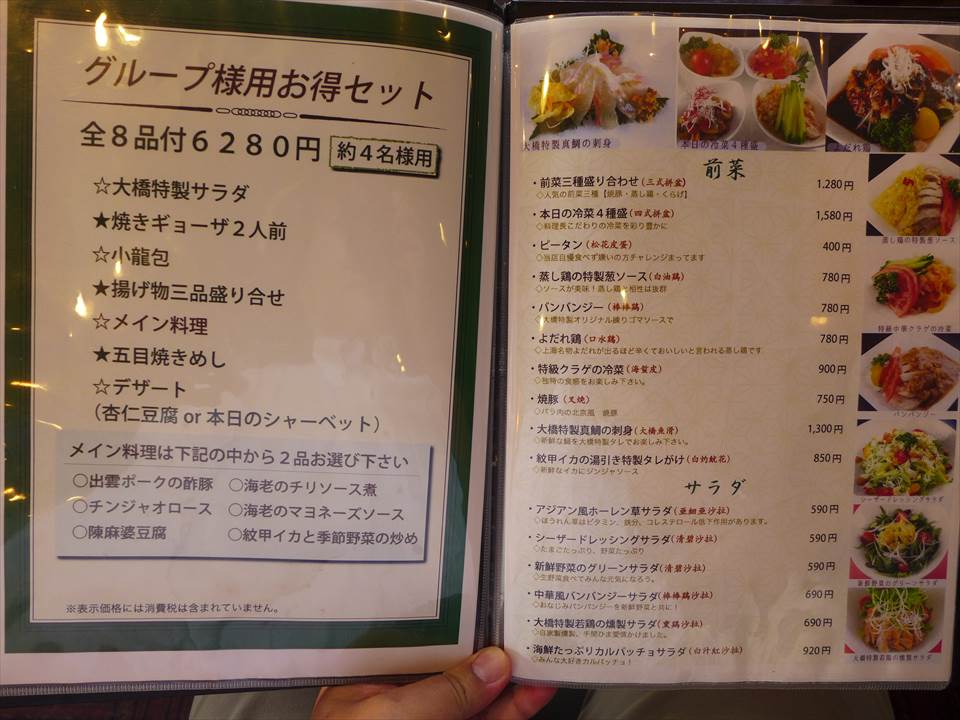 グループ様用お得セット
全8品付6280円 約4名様用
☆大橋特製サラダ
★焼きギョーザ2人前
☆小龍包
★揚げ物三品盛り合せ
☆メイン料理
★五目焼きめし
☆デザート
(杏仁豆腐 or 本日のシャーベット)
メイン料理は下記の中から2品お選び下さい
○出雲ポークの酢豚 ○海老のチリソース煮
○チンジャオロース ○海老のマヨネーズソース
○陳麻婆豆腐 ○紋甲イカと季節野菜の炒め
※表示価格には消費税は含まれていません。
大橋特製真鯛の刺身
本日の冷菜4種盛
よだれ鶏
前菜
・前菜三種盛り合わせ(三式拼盆) 1,280円
◇人気の前菜三種【焼豚・蒸し鶏・くらげ】
・本日の冷菜4種盛(四式拼盆) 1,580円
◇料理長こだわりの冷菜を彩り豊かに
・ピータン(松花皮蛋) 400円
◇当店自慢食べず嫌いの方チャレンジまってます
・蒸し鶏の特製葱ソース(白油鶏) 780円
◇ソースが美味!蒸し鶏と相性は抜群
・バンバンジー(棒棒鶏) 780円
◇大橋特製オリジナル練りゴマソースで
・よだれ鶏(口水鶏) 780円
◇上海名物よだれが出るほど辛くておいしいと言われる蒸し鶏です
・特級クラゲの冷菜(海蜇皮) 900円
◇独特の食感をお楽しみ下さい。
・焼豚(叉焼) 750円
◇バラ肉の北京風 焼豚
・大橋特製真鯛の刺身(大橋魚滑) 1,300円
◇新鮮な鯛を大橋特製タレでお楽しみ下さい。
・紋甲イカの湯引き特製タレがけ(白灼魷花) 850円
◇新鮮なイカにジンジャソース
サラダ
・アジアン風ホーレン草サラダ(亜細亜沙拉) 590円
◇ほうれん草はビタミン、鉄分、コレステロール低下作用があります。
・シーザードレッシングサラダ(清碧沙拉) 590円
◇たまごたっぷり、野菜たっぷり
・新鮮野菜のグリーンサラダ(清碧沙拉) 590円
◇生野菜食べてみんな元気になろう。
・中華風バンバンジーサラダ(棒棒鶏沙拉) 690円
◇おなじみバンバンジーを新鮮野菜と共に!
・大橋特製若鶏の燻製サラダ(熏鶏沙拉) 690円
◇自家製燻製、手間ひま愛情かけました。
・海鮮たっぷりカルパッチョサラダ(白汁紅沙拉) 920円
◇みんな大好きカルパッチョ!
蒸し鶏の特製葱ソース
特級中華クラゲの冷菜
バンバンジー
シーザードレッシングサラダ
新鮮野菜のグリーンサラダ
大橋特製若鶏の燻製サラダ